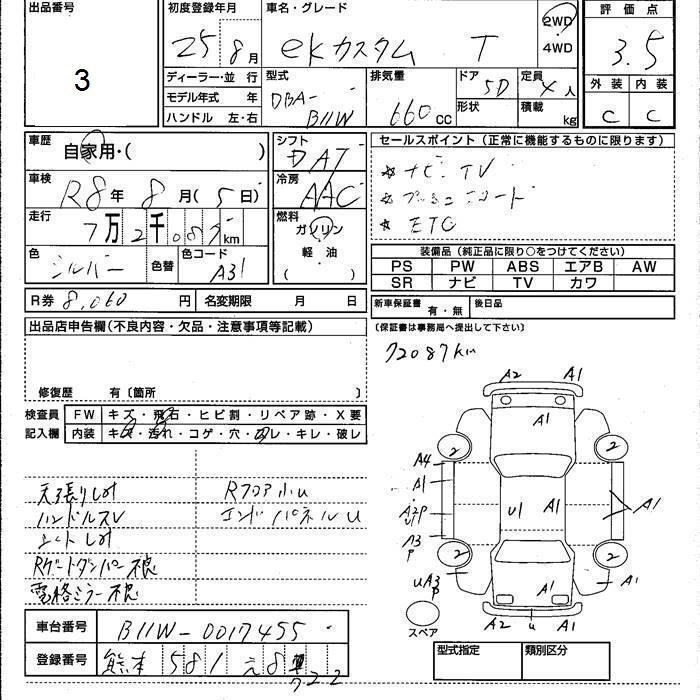 出品番号
3
初度登録年月
25 8月
車名・グレード
eKカスタム T
2WD
4WD
評価点
3.5
外装 内装
C C
ディーラー・並行
モデル年式 年
ハンドル 左・右
型式
DBA-
B11W
排気量
660cc
ドア 5D
形状
定員 4人
積載 kg
車歴
自家用・( )
車検
R8年 8月(5日)
走行
7万2千087km
色
シルバー
色替
色コード
A31
シフト
DAT
冷房
AAC
燃料
ガソリン
軽油
( )
セールスポイント(正常に機能するものに限ります)
☆ナビ TV
☆
☆ETC
装備品(純正品に限り○をつけてください)
PS PW ABS エアB AW
SR ナビ TV カワ
R券 8,060円
名変期限 月 日
新車保証書 有・無
後日品
(保証書は事務局へ提出して下さい)
出品店申告欄(不良内容・欠品・注意事項等記載)
72087km
修復歴 有〔箇所 〕
検査員 FW キズ・飛石・ヒビ割・リペア跡・X要
記入欄 内装 キズ・汚れ・コゲ・穴・コレ・キレ・破レ
天張りシミ
Rフロア小U
ハンドルスレ
エンドパネルU
シートシミ
Rゲートダンパー不良
電格ミラー不良
A2 A1
A1
2 2
A4
A1
A2P
U1P
U1 A1
A1
A3
P
2 2
UA3
P
A1 A1
A2 U A1
スペア
車台番号 B11W-0017455
登録番号 熊本 581 え 8
722
型式指定 類別区分